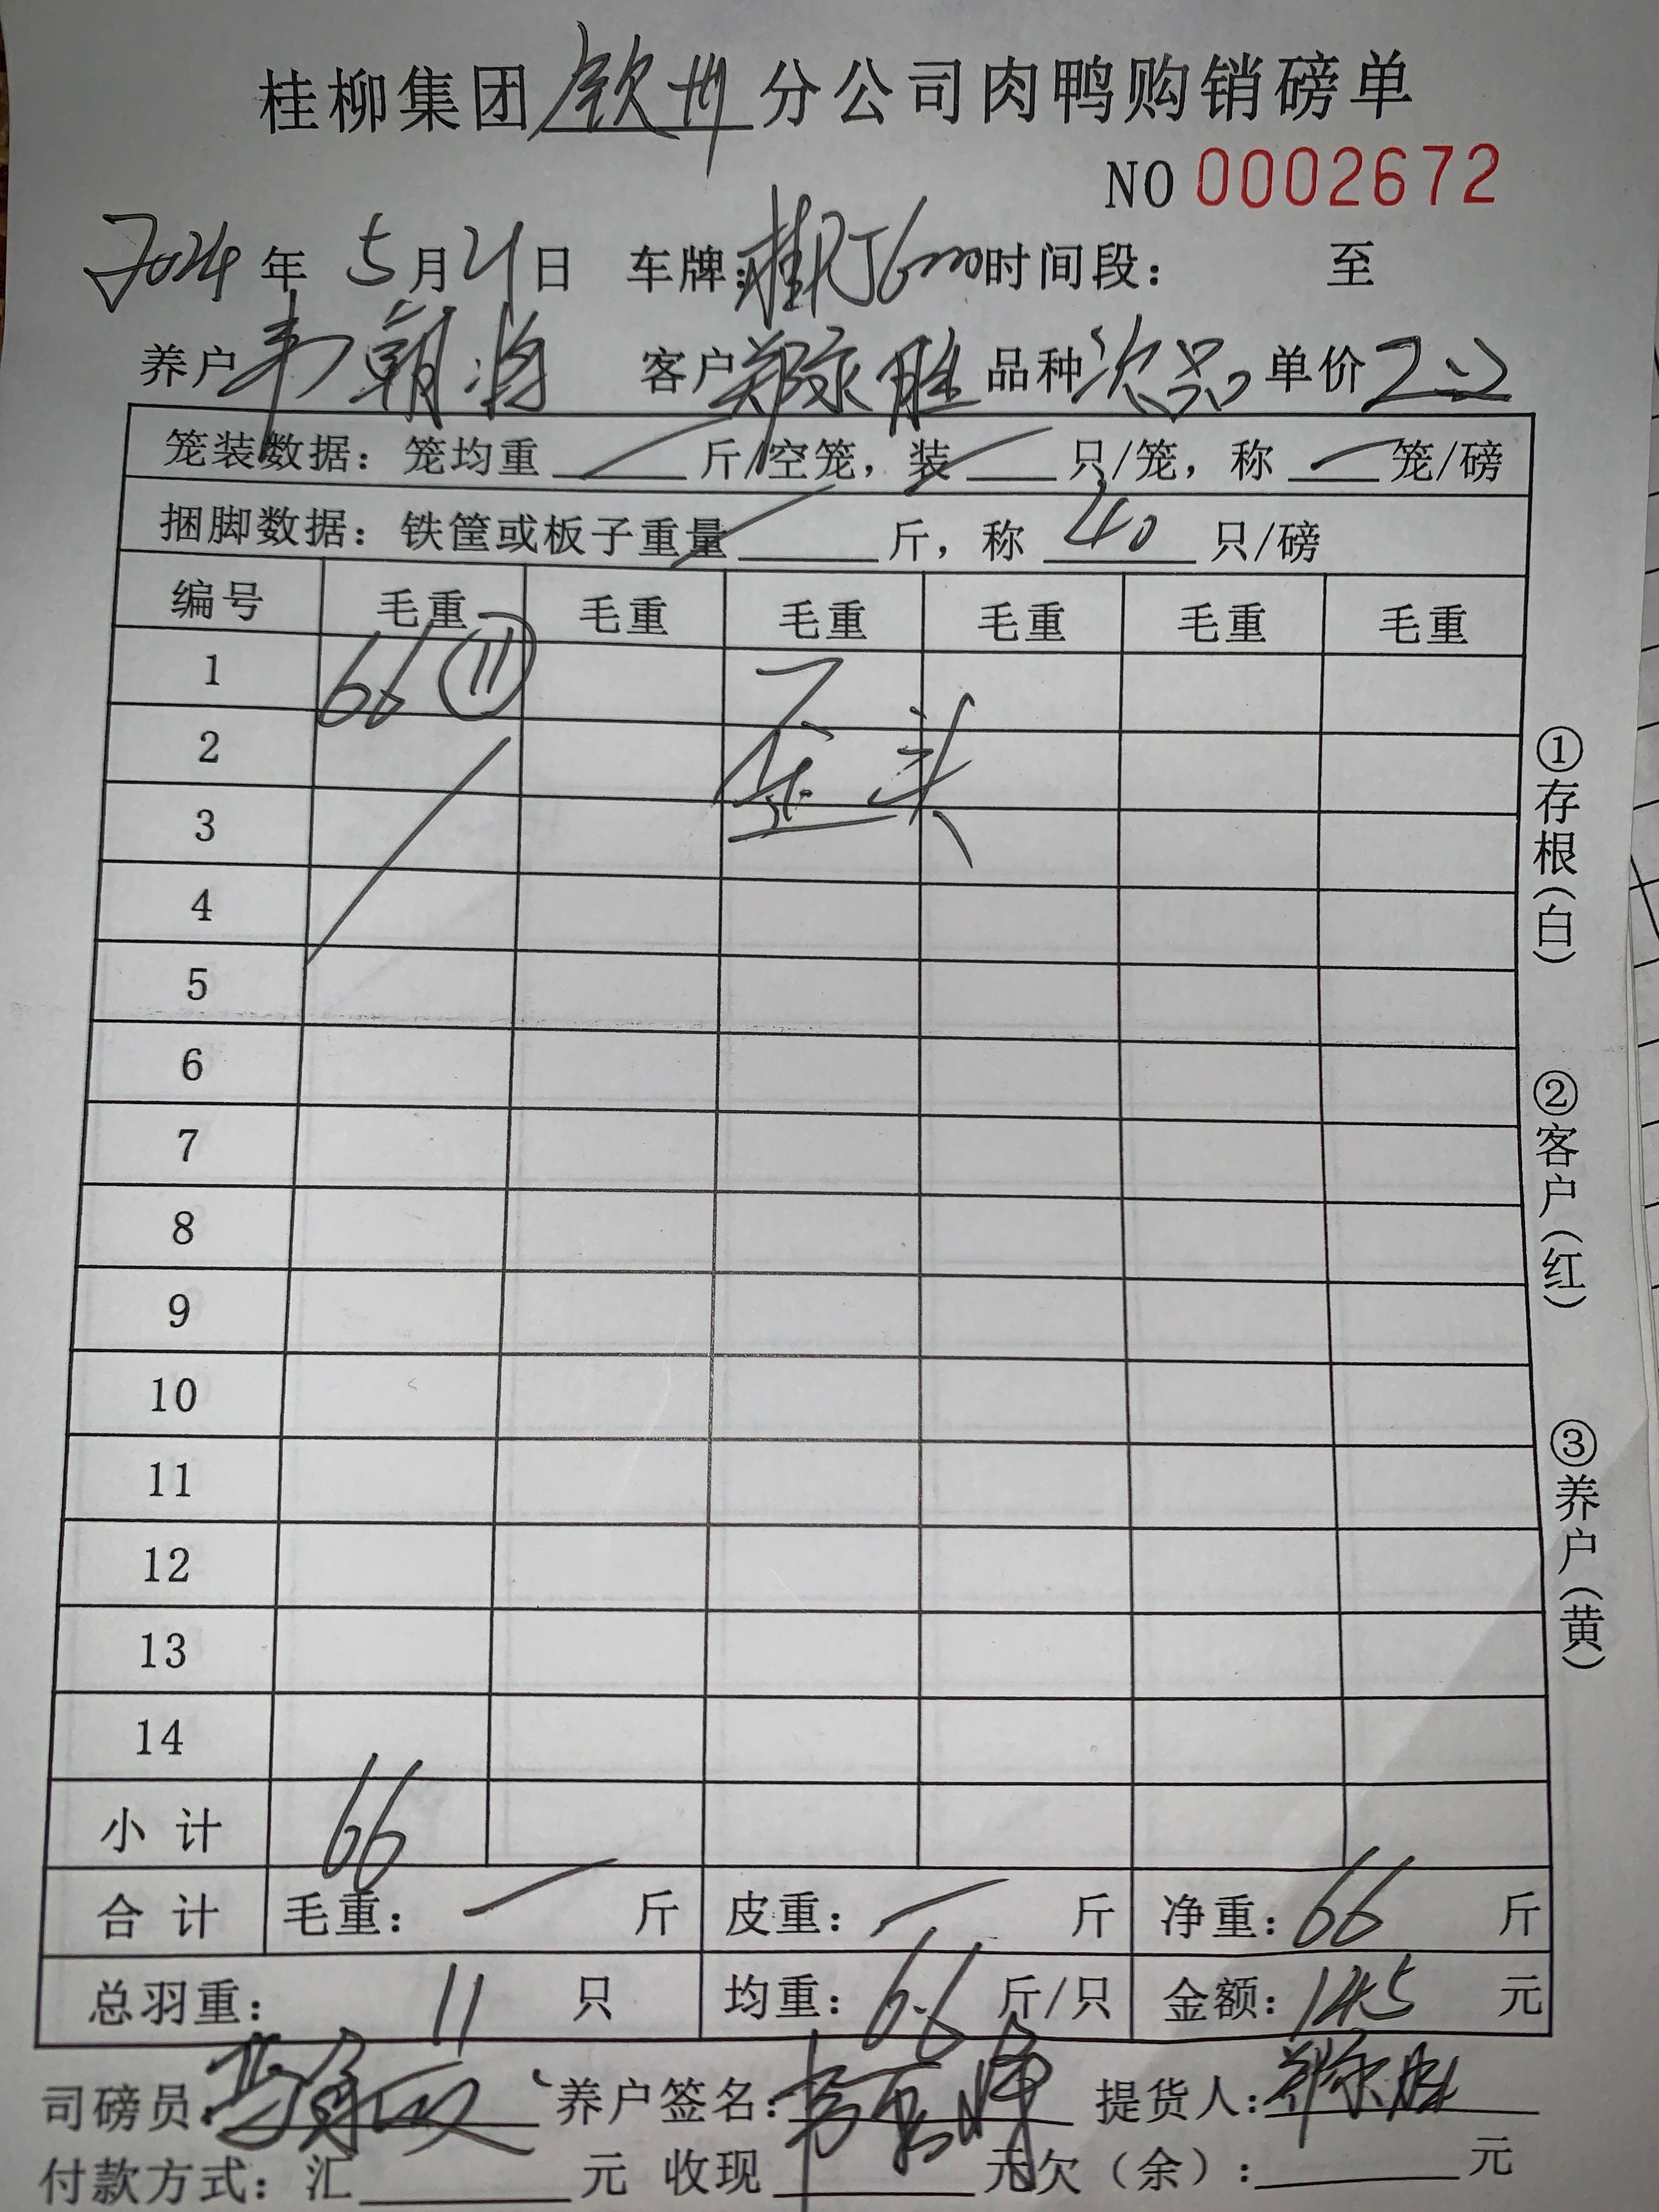 桂柳集团钦州分公司肉鸭购销磅单
NO 0002672
2024年 5月21日 车牌:桂 时间段: 至
养户韦朝将 客户郑永胜 品种次品 单价2.2
笼装数据:笼均重 斤/空笼,装 只/笼,称 笼/磅
捆脚数据:铁筐或板子重量 斤,称 40 只/磅
编号 毛重 毛重 毛重 毛重 毛重 毛重
1 66 ⑪
2
3
4
5
6
7
8
9
10
11
12
13
14
小计 66
合计 毛重: 一 斤 皮重: 一 斤 净重:66 斤
总羽重: 11 只 均重:6.6 斤/只 金额:145 元
司磅员: 养户签名: 提货人:郑永胜
付款方式:汇 元 收现 元欠(余): 元
①存根(白)
②客户(红)
③养户(黄)